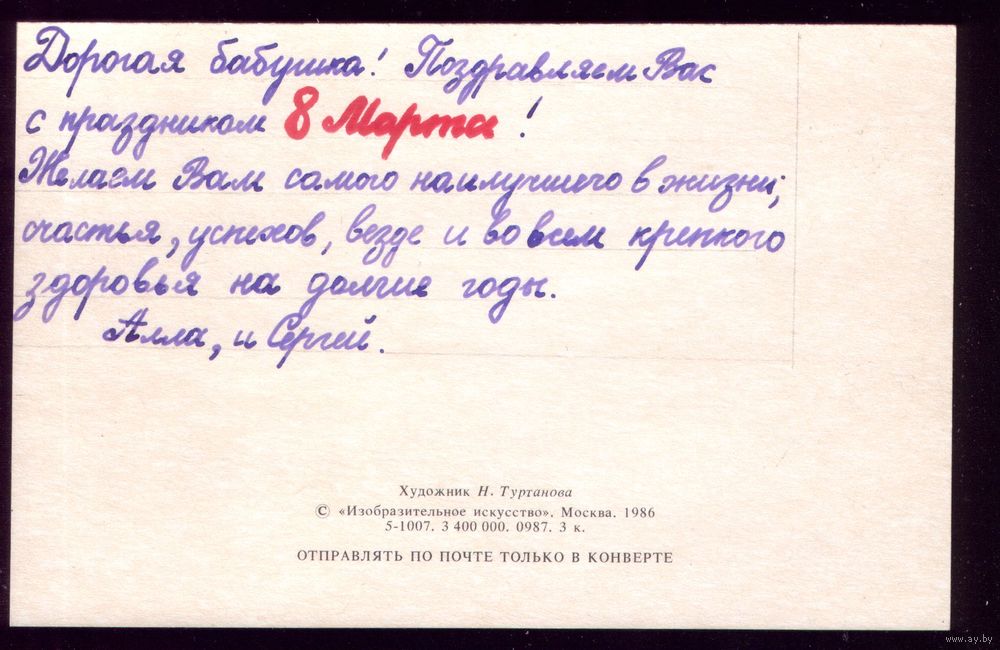 Дорогая бабушка! Поздравляем Вас
с праздником 8 Марта!
Желаем Вам самого наилучшего в жизни,
счастья, успехов, везде и во всем крепкого
здоровья на долгие годы.
Алла, и Сергей.
Художник Н. Туртанова
© «Изобразительное искусство». Москва. 1986
5-1007. 3 400 000. 0987. 3 к.
ОТПРАВЛЯТЬ ПО ПОЧТЕ ТОЛЬКО В КОНВЕРТЕ
www.ay.by